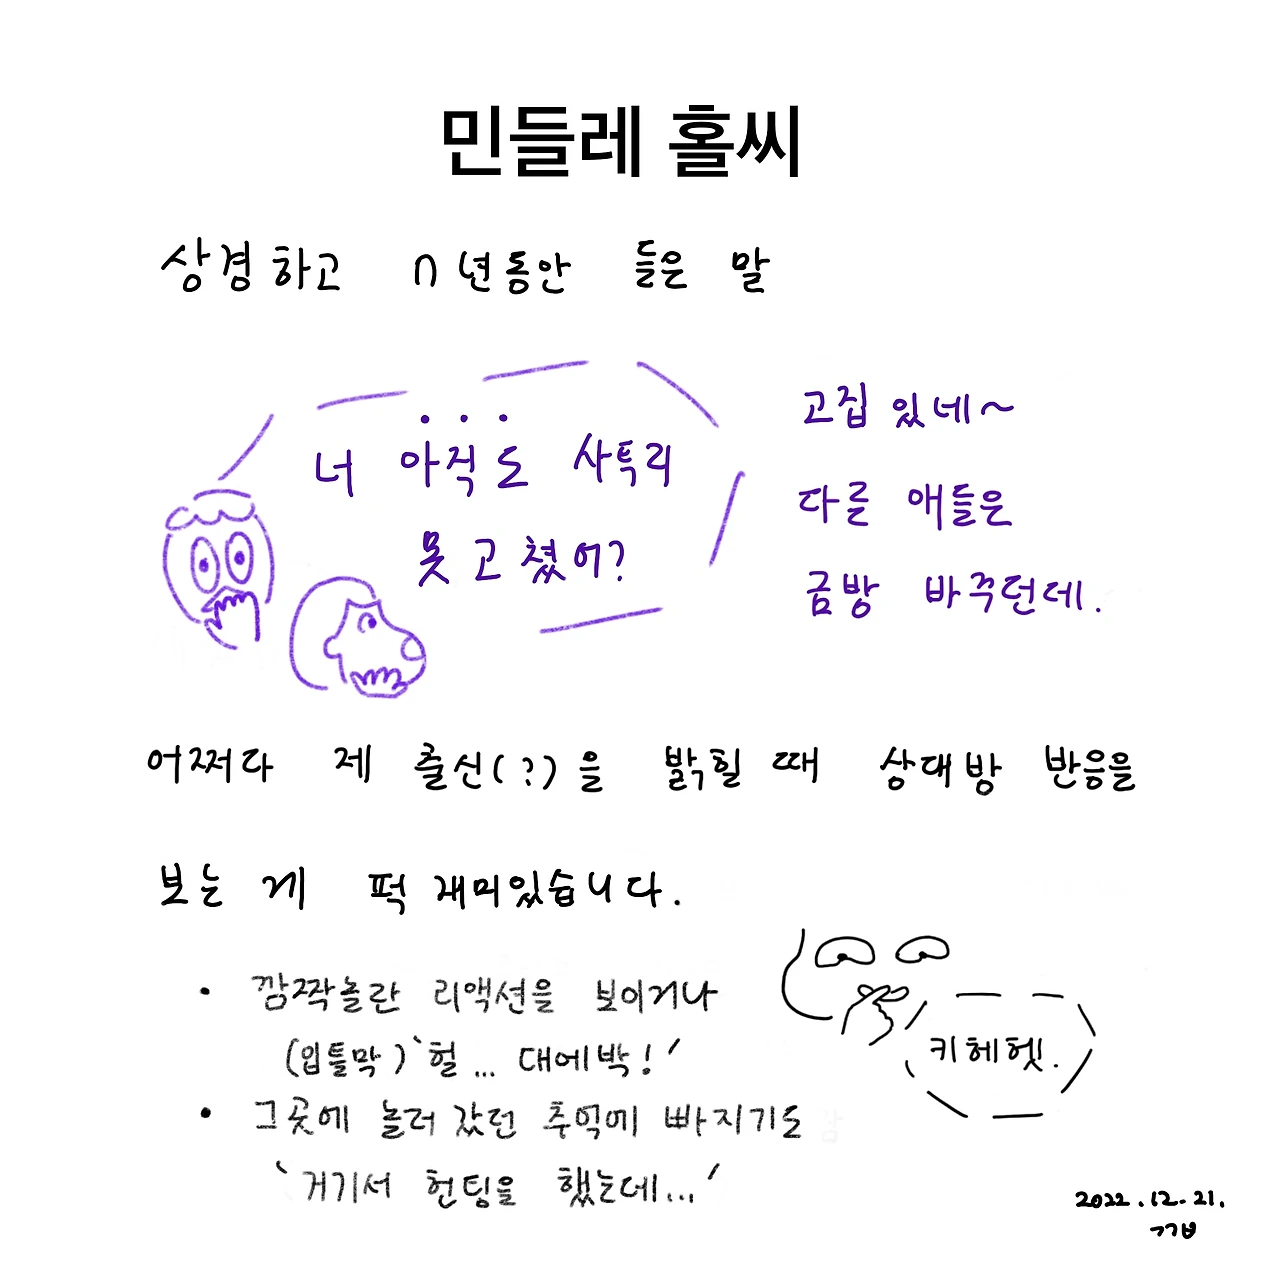 민들레 홀씨
상경하고 n년동안 들은 말
...
너 아직도 사투리
못고쳤어?
고집 있네~
다른 애들은
금방 바꾸던데.
어쩌다 제 출신(?)을 밝힐 때 상대방 반응을
보는 게 퍽 재미있습니다.
• 깜짝놀란 리액션을 보이거나
(입틀막)'헐... 대에박!'
• 그곳에 놀러 갔던 추억에 빠지기도
'거기서 헌팅을 했는데...'
키헤헷.
2022.12.21.
ㄲㅂ